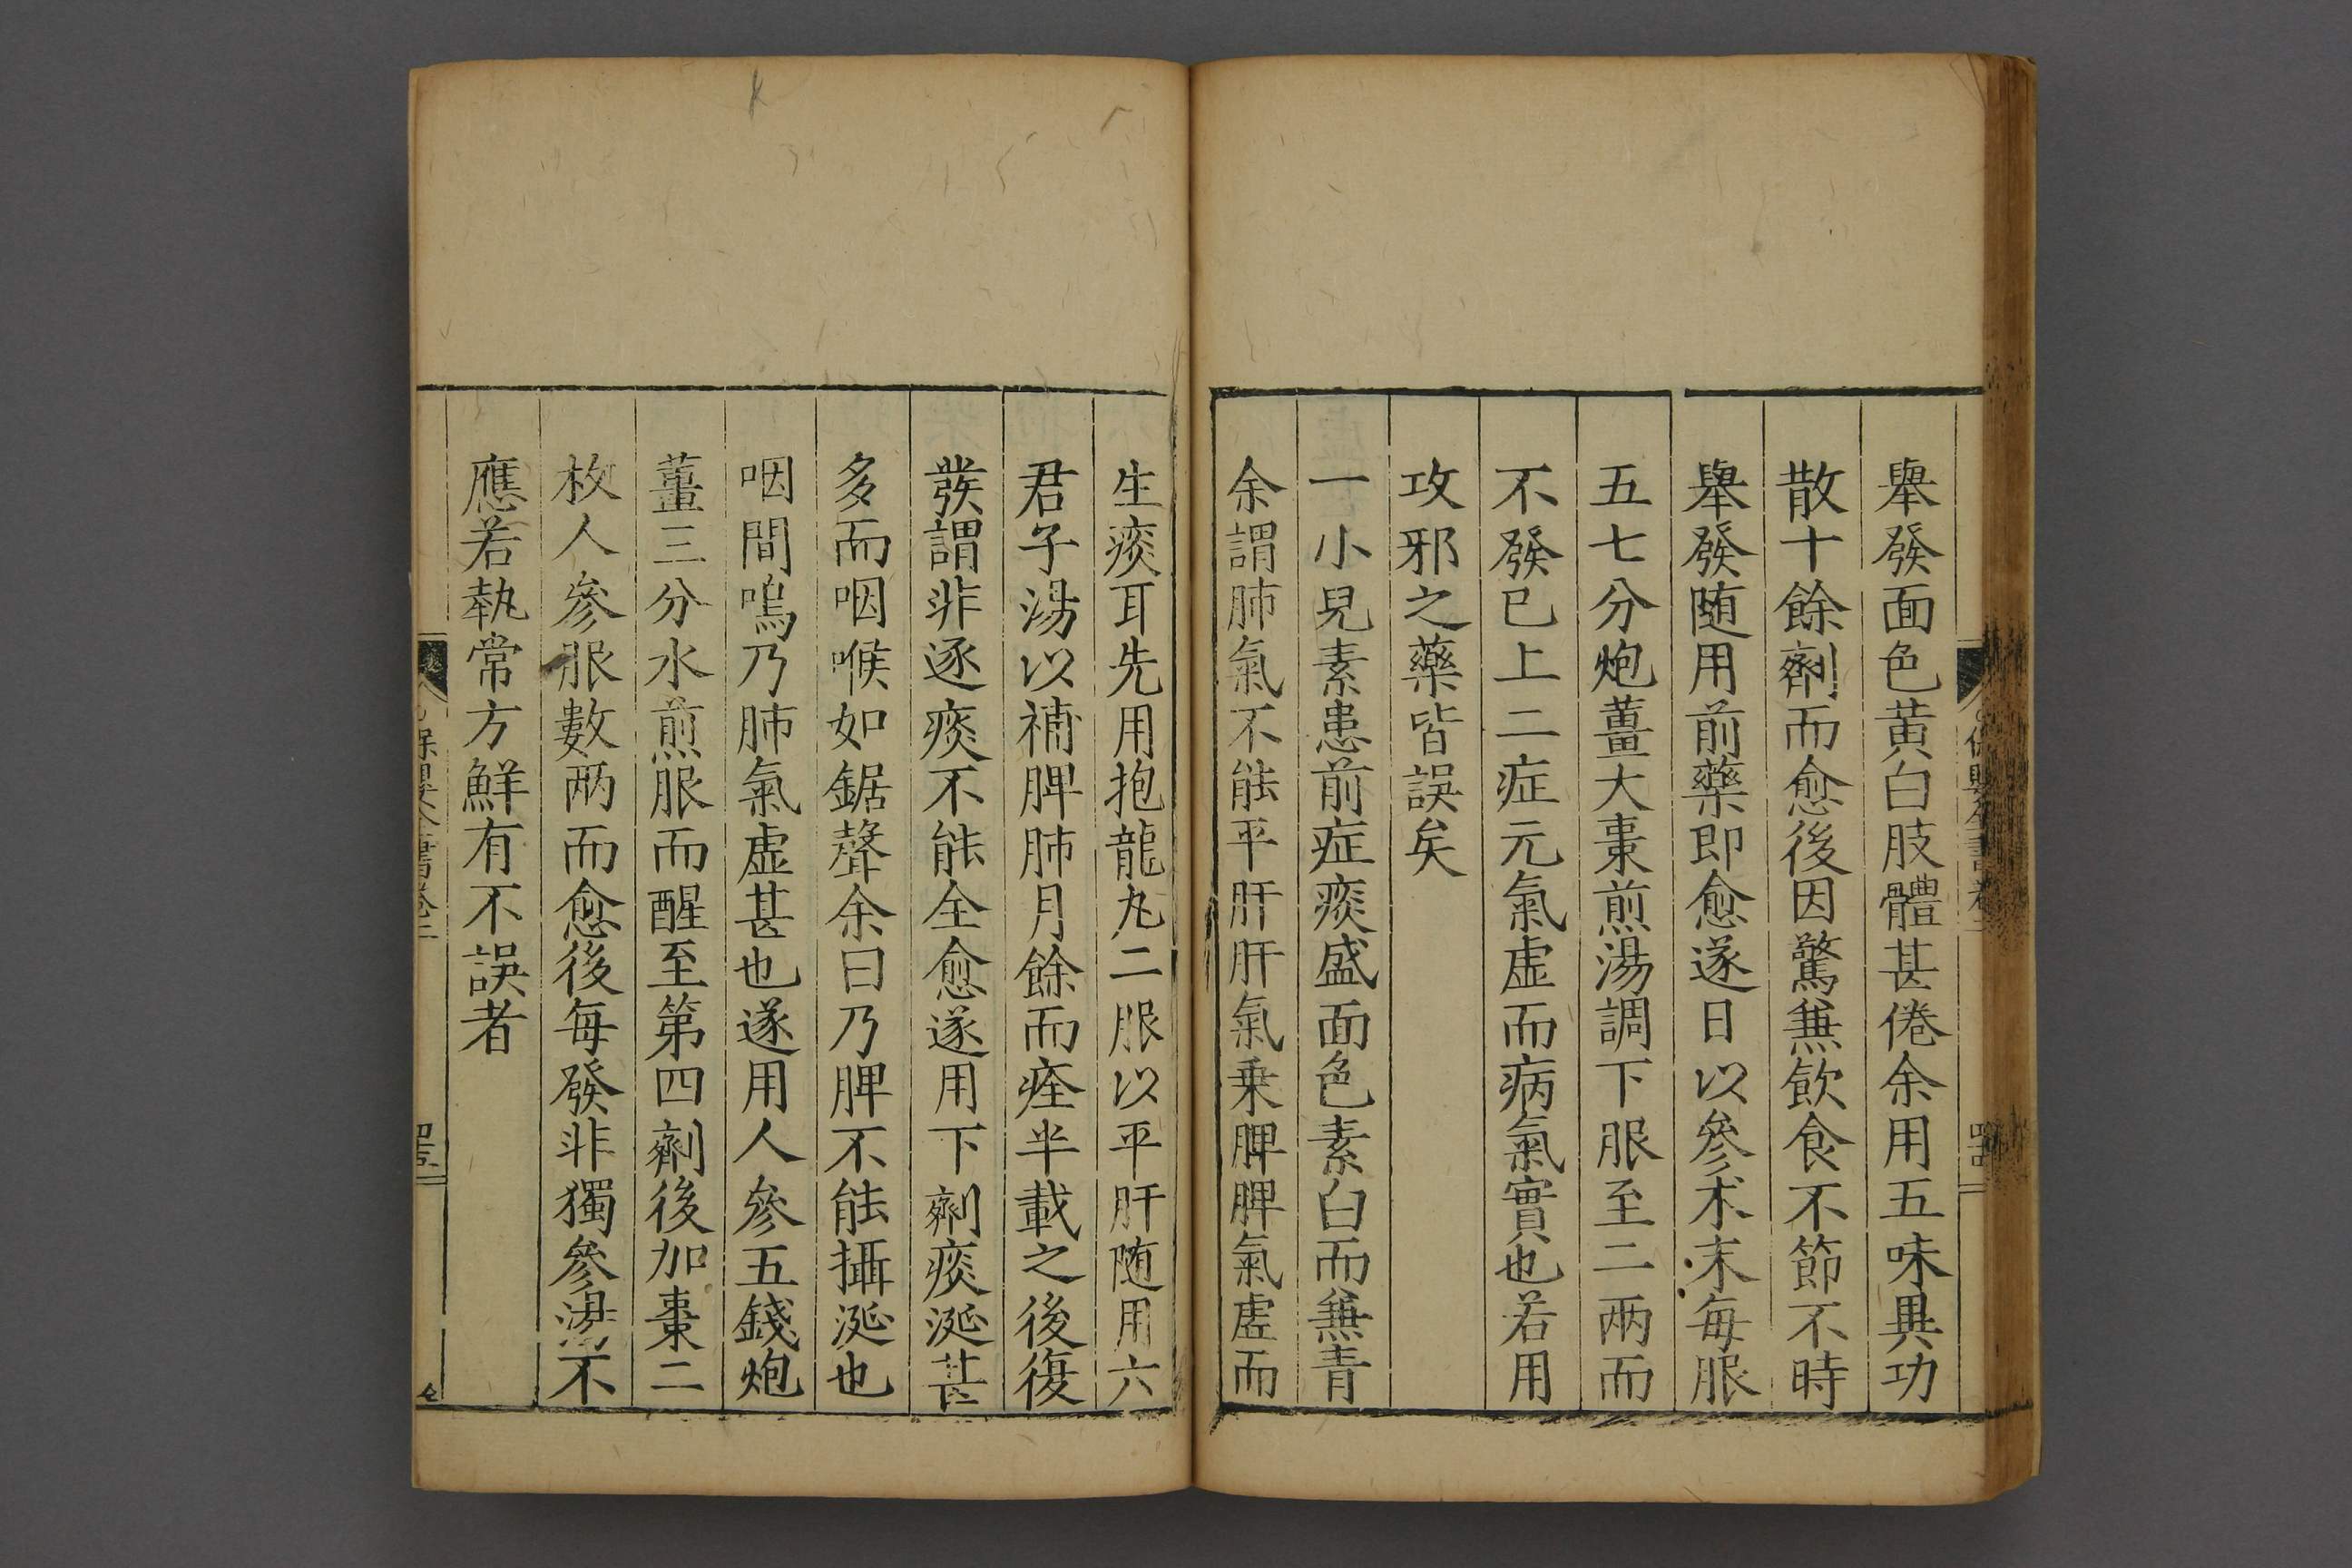 舉發面色黃白肢體甚倦余用五味異功
散十餘劑而愈後因驚兼飲食不節不時
舉發随用前藥即愈遂日以參术末每服
五七分炮薑大棗煎湯調下服至二兩而
不發已上二症元氣虛而病氣實也若用
攻邪之藥皆誤矣
一小兒素患前症痰盛面色素白而兼青
余謂肺氣不能平肝肝氣乗脾脾氣虛而
生痰耳先用抱龍丸二服以平肝随用六
君子湯以補脾肺月餘而痊半載之後復
發謂非逐痰不能全愈遂用下劑痰涎甚
多而咽喉如鋸聲余曰乃脾不能攝涎也
咽間嗚乃肺氣虛甚也遂用人參五錢炮
薑三分水煎服而醒至第四劑後加棗二
枚人參服數兩而愈後每發非獨參湯不
應若執常方鮮有不誤者
保嬰全書卷二